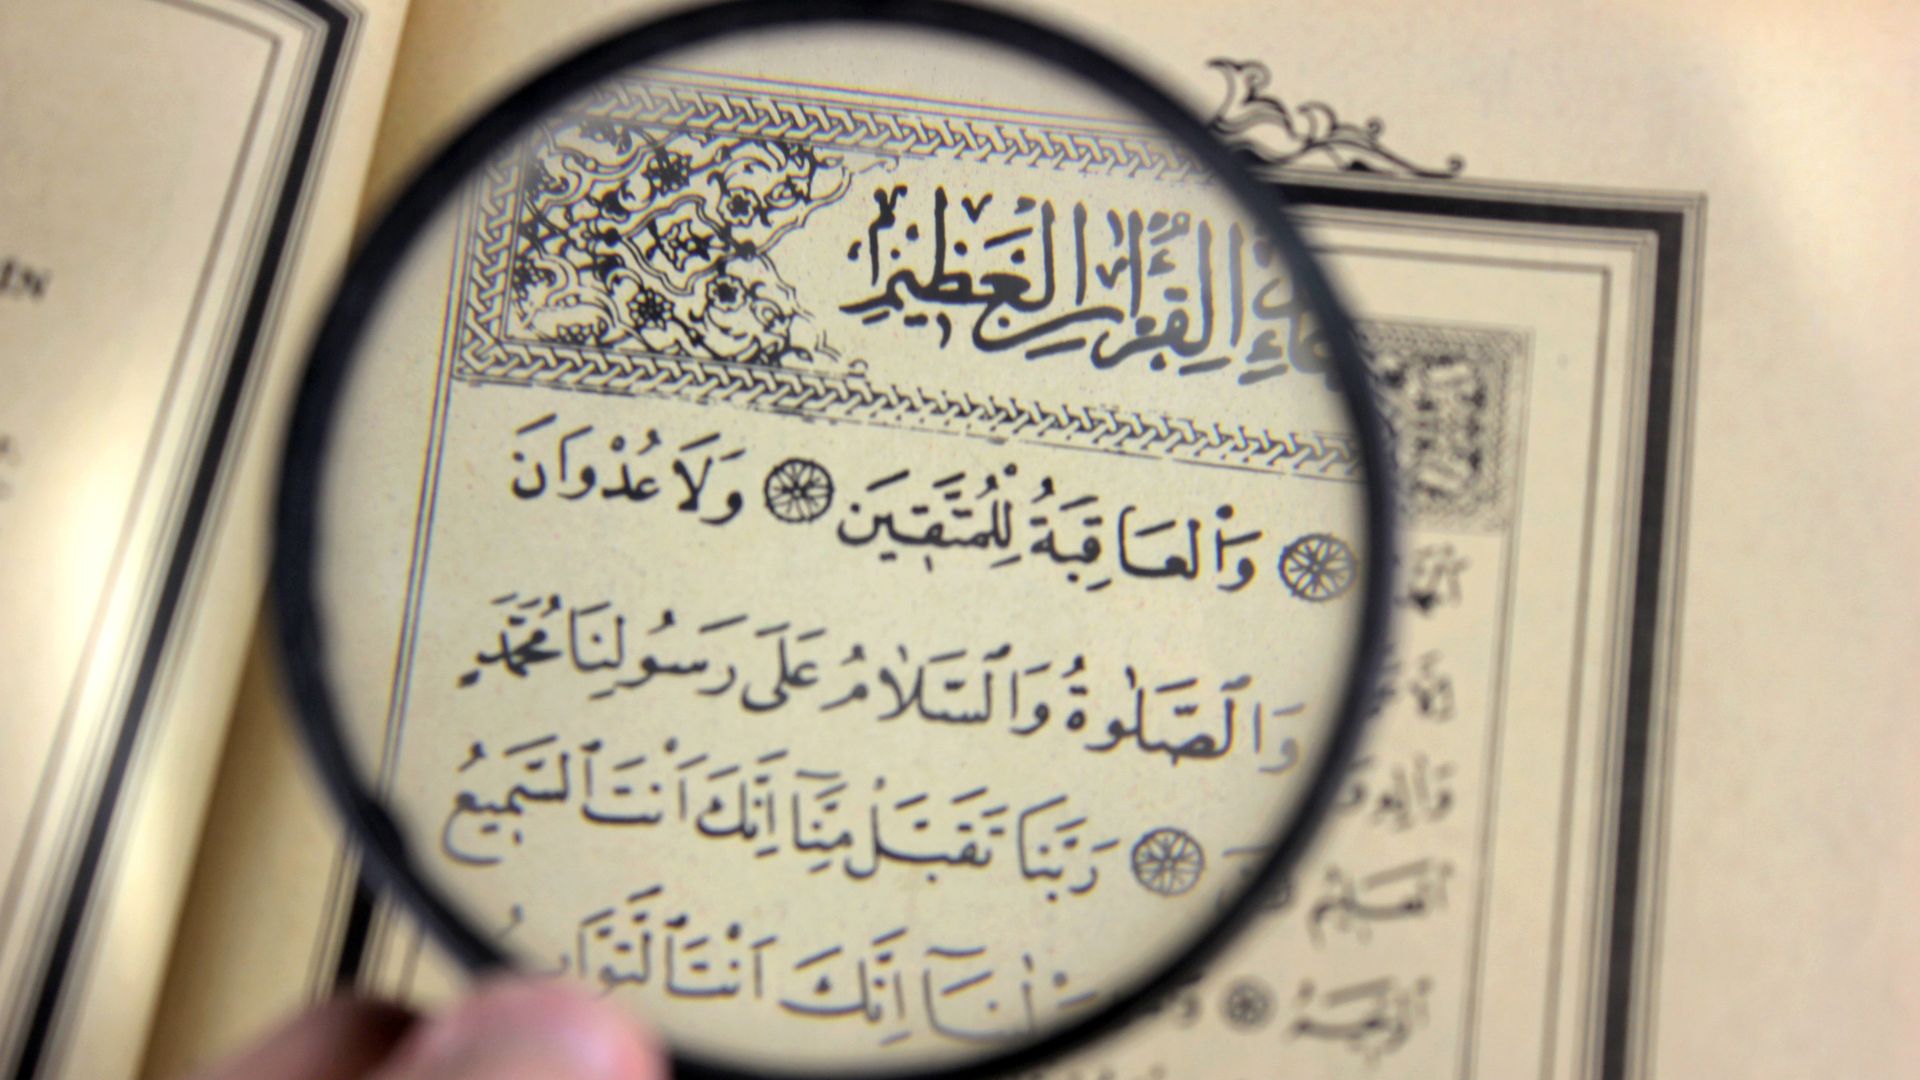 IN
الْقُرْاٰنِ الْعَظِيمِ
وَالْعَاقِبَةُ لِلْمُتَّقِينَ وَلَا عُدْوَانَ
وَالصَّلٰوةُ وَالسَّلَامُ عَلَى رَسُولِنَا مُحَمَّدٍ
رَبَّنَا تَقَبَّلْ مِنَّا اِنَّكَ اَنْتَ السَّمِيعُ
الْعَلِيمُ
اِنَّكَ اَنْتَ التَّوَّابُ
الرَّحِيمُ